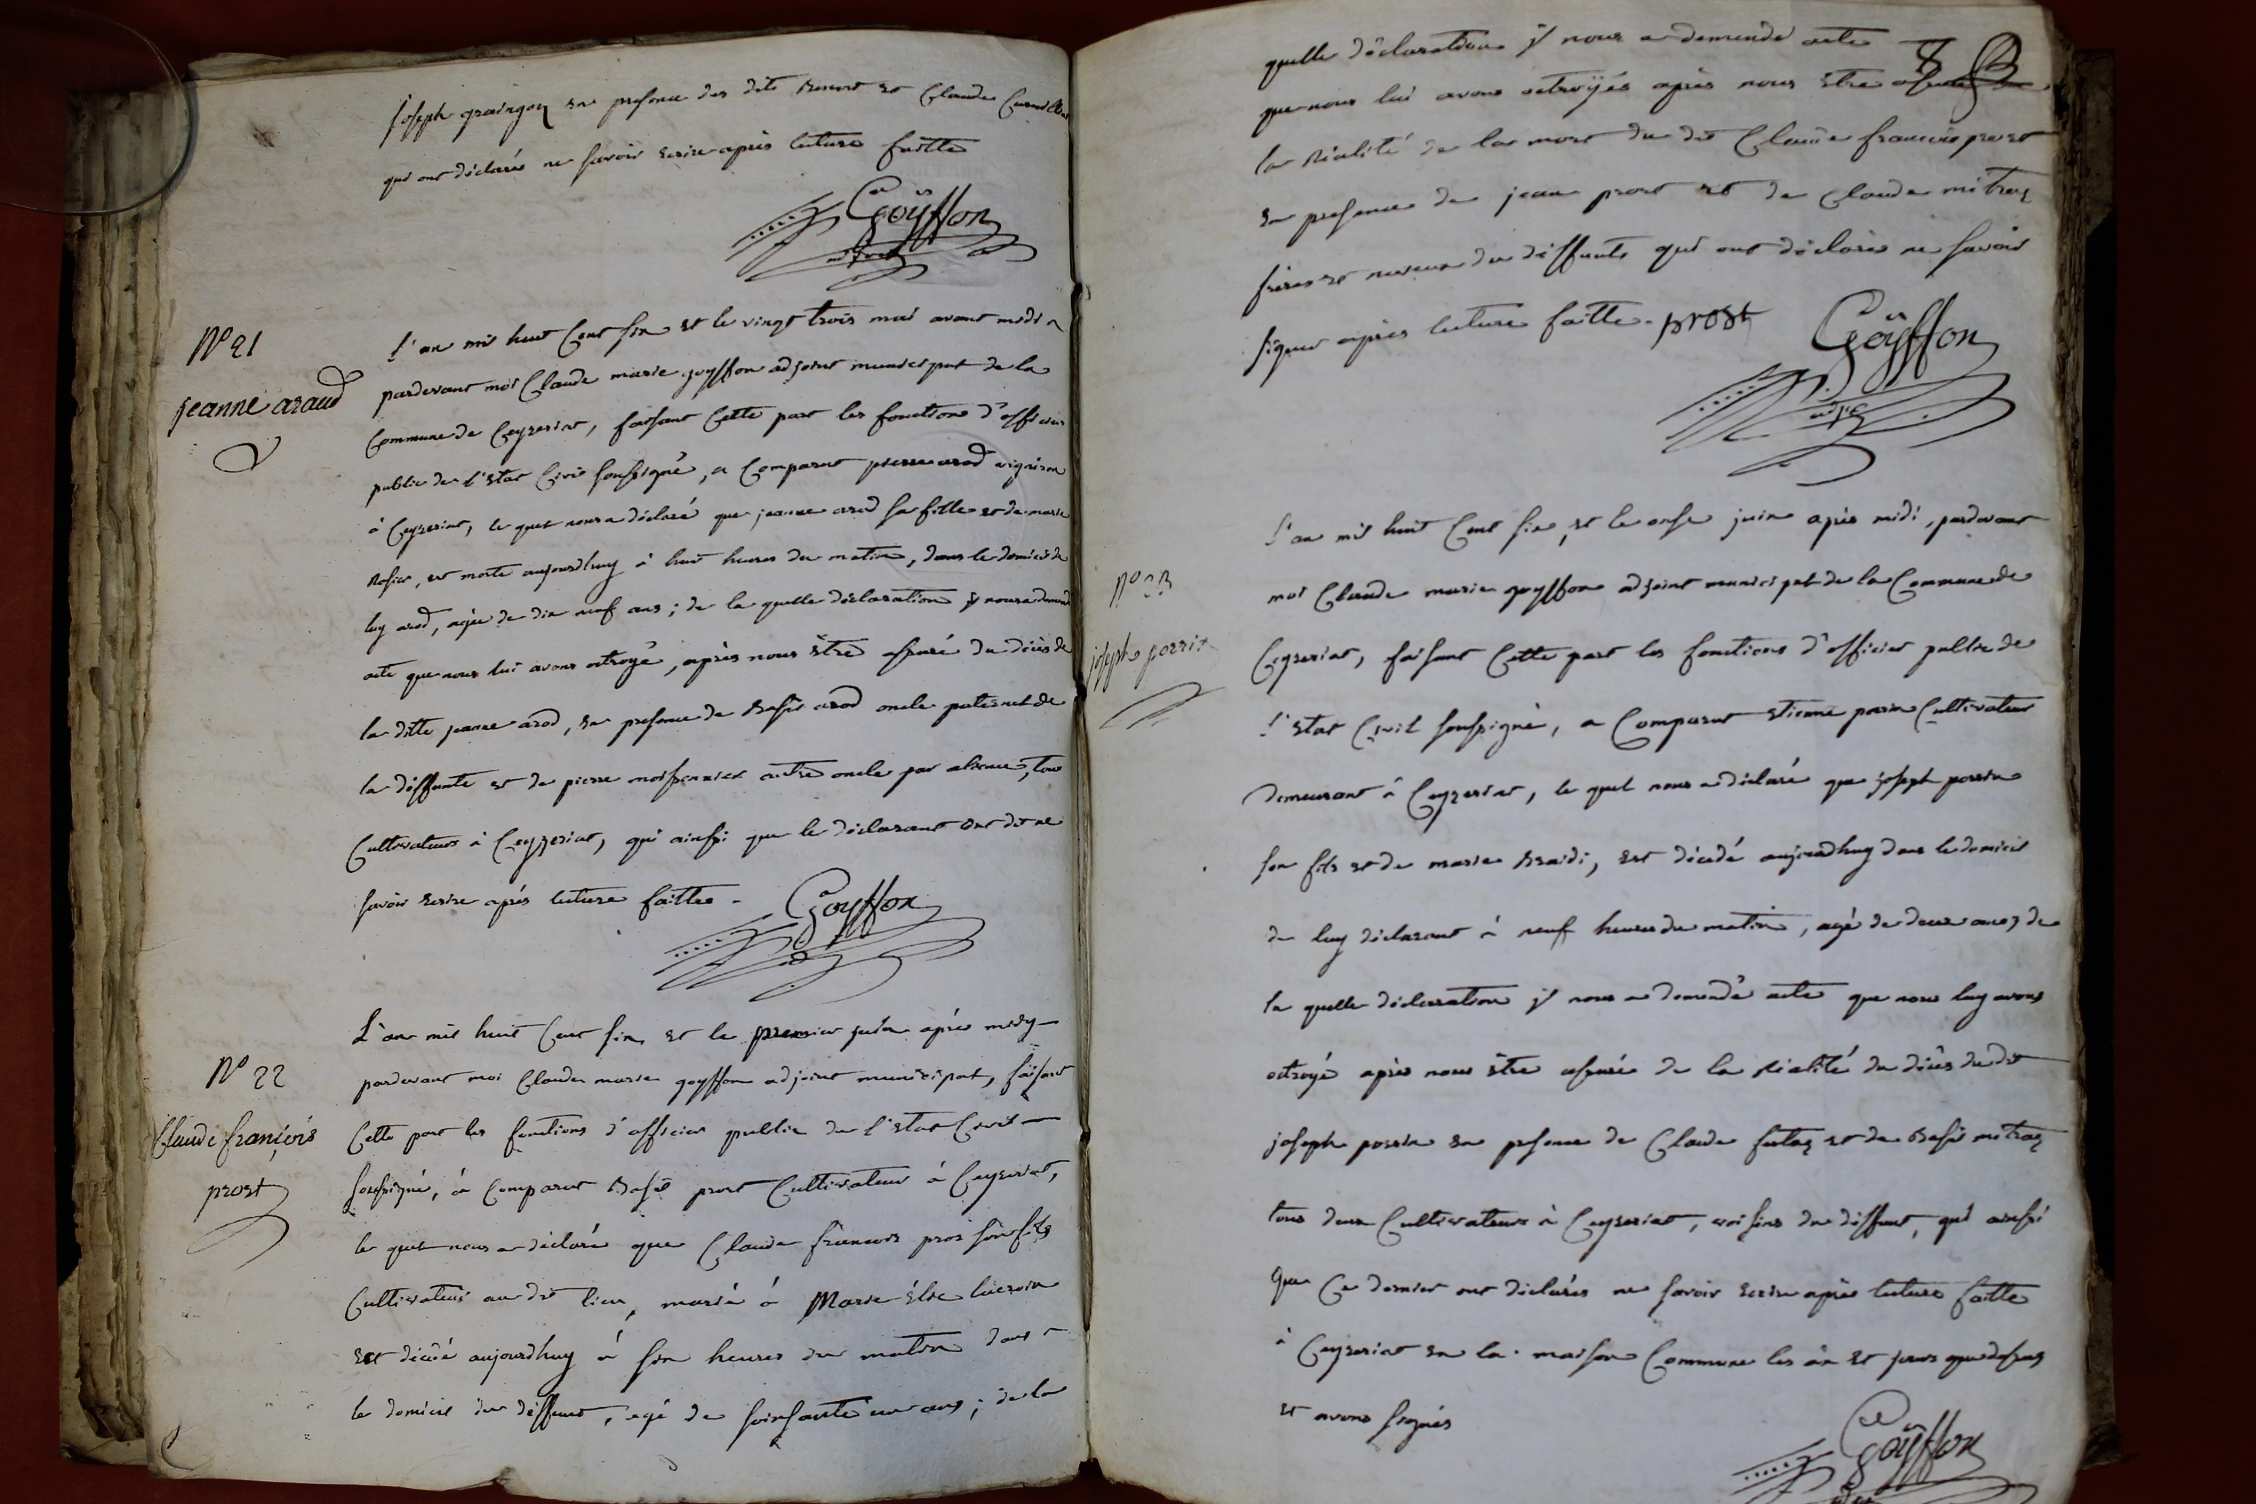 joseph graingoz en presence des dits Benoit et Claude
qui ont déclarés ne savoir ecrire après lecture faitte
Goÿffon
N° 21
jeanne araud
L'an mil huit Cent six et le vingt trois mai avant midi
pardevant moi Claude marie goyffon adjoint municipal de la
Commune de Ceyzeriat, faisant Cette part les fonctions d'officier
public de l'Etat Civil soussigné, a Comparut pierre arod vigneron
à Ceyzeriat, le quel nous a déclaré que jeanne arod sa fille et de marie
Rosier, est morte aujourdhuy à huit heures du matin, dans le domicile de
luy arod, agée de dix neuf ans; de la quelle déclaration il nous a demandé
acte que nous lui avons octroyé, après nous être assuré du décès de
la ditte jeanne arod, en presence de Basile arod oncle paternel de
la deffunte et de pierre moissonnier autre oncle par alliance, tous
Cultivateurs à Ceyzeriat, qui ainssi que le déclarant ont dit ne
savoir ecrire après lecture faitte.
Goyffon
adj
N° 22
Claude françois
prost
L'an mil huit Cent six, et le premier juin après midy
pardevant moi Claude marie goyffon adjoint municipal, faisant
Cette part les fonctions d'officier public de l'Etat Civil
soussigné, a Comparut Basile prost Cultivateur à Ceyzeriat,
le quel nous a déclaré que Claude francois pros son fils
Cultivateur au dit lieu, marié à Marie élie lacroix
est décédé aujourdhuy à six heures du matin dans
le domicile du deffunt, agé de soissante un ans; de la
quelle déclaration il nous a demandé acte
que nous lui avons octroyés après nous être assuré de
la réalité de la mort du dit Claude francois prost
en presence de jean prost et de Claude mitraz
frères et neveux du deffunts qui ont déclarés ne savoir
signer après lecture faitte. prost
Goÿffon
adjt
N° 23
joseph perrin
L'an mil huit Cent six, et le onse juin après midi, pardevant
moi Claude marie goyffon adjoint municipal de la Commune de
Ceyzeriat, faisant Cette part les fonctions d'officier public de
l'Etat Civil soussigné, a Comparut Etienne perrin Cultivateur
demeurant à Ceyzeriat, le quel nous a déclaré que joseph perrin
son fils et de marie Braidi, est décédé aujourdhuy dans le domicile
de luy déclarant à neuf heures du matin, agé de deux ans, de
la quelle déclaration il nous a demandé acte que nous luy avons
octroyé après nous être assurée de la réalité du décès du dit
joseph perrin en presence de Claude et de Basile mitraz
tous deux Cultivateurs à Ceyzeriat, voisins du deffunt, qui ainssi
que Ce dernier ont déclarés ne savoir ecrire après lecture faitte
à Ceyzeriat en la maison Commune les an et jours que dessus
et avons signés
Goÿffon